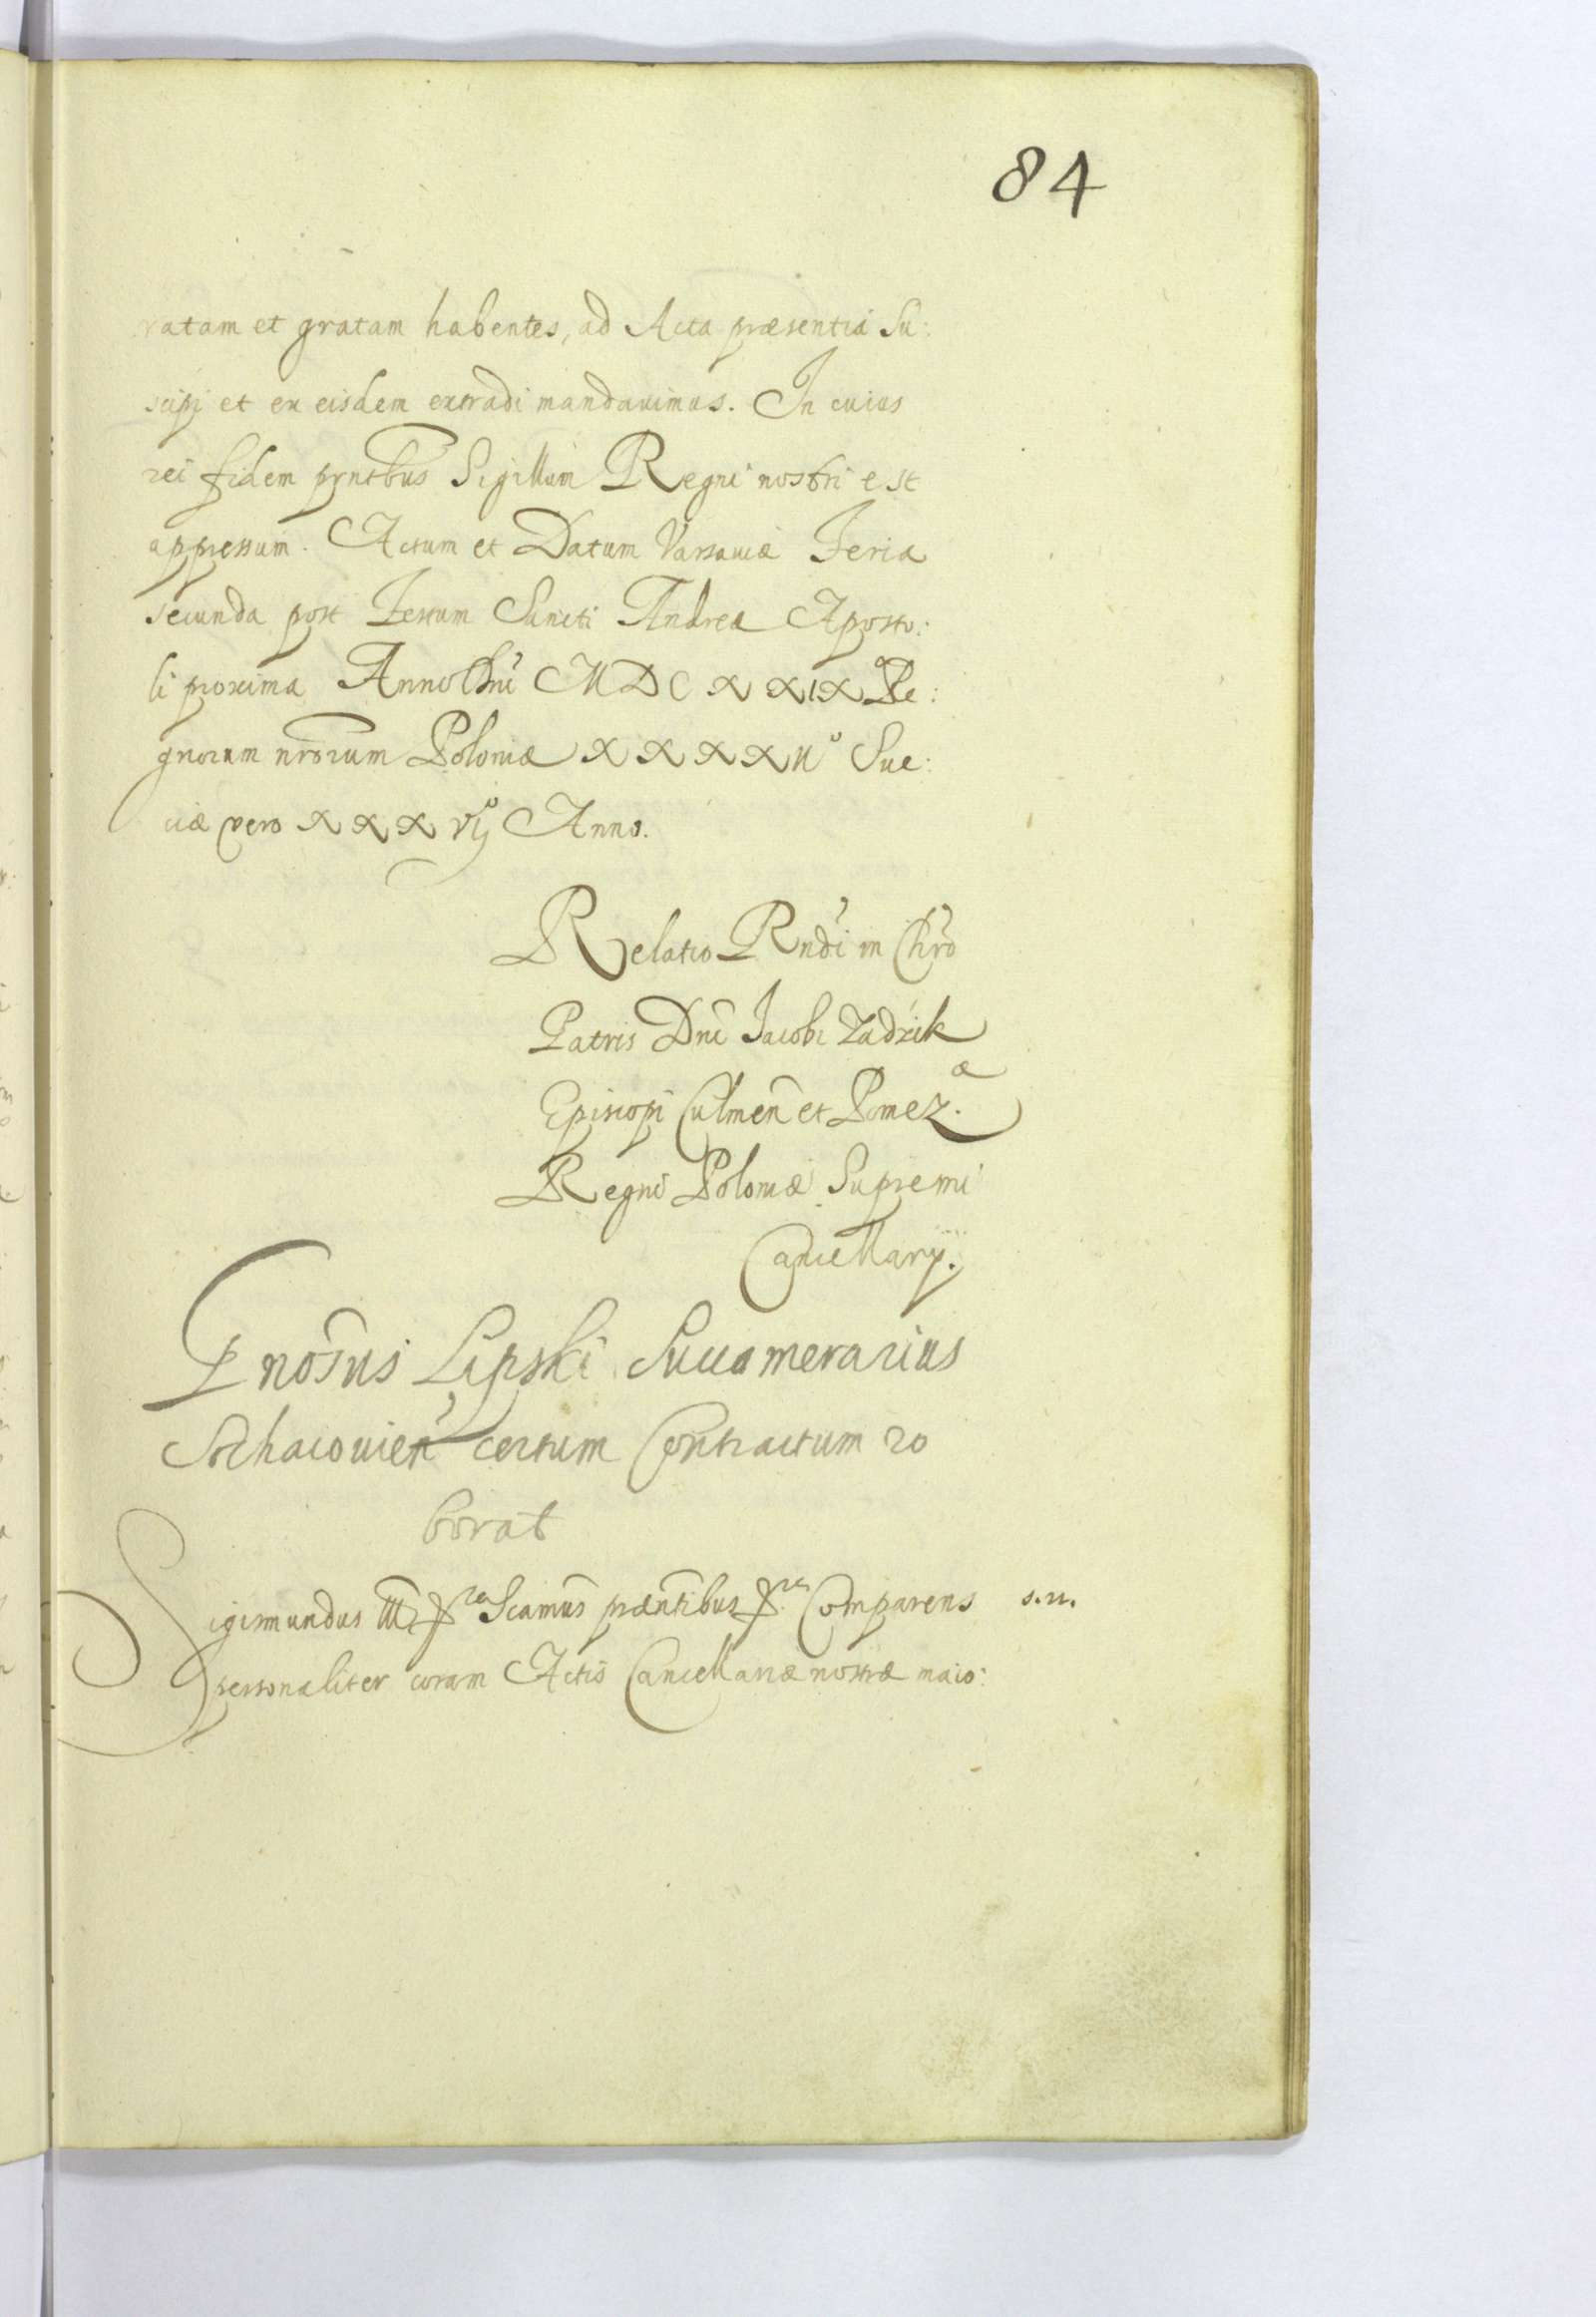 84
ratam et gratam habentes, ad Acta præsentia Su:
scipi et ex eisdem extradi mandauimus. In cuius
rei fidem pntbus Sigillum Regni nostri est
appressum. Actum et Datum Varsauiæ Feria
secunda post Festum Sancti Andreæ Aposto:
li proxima Anno Dni MDCXXIX Re:
gnorum nrorum Poloniæ XXXXII° Sue:
ciæ vero XXXVIJ° Anno.
Relatio Rndi in Chro
Patris Dni Jacobi Zadzik
Episcopi Culmen et Pomez.
Regni Poloniæ Supremi
Cancellarÿ.
Gnosus Lipski Succamerarius
Sochaciouien certum Contractum ro
borat
Sigismundus III etc Scamus præntibus etc Comparens s.n.
personaliter coram Actis Cancellariæ nostræ maio: